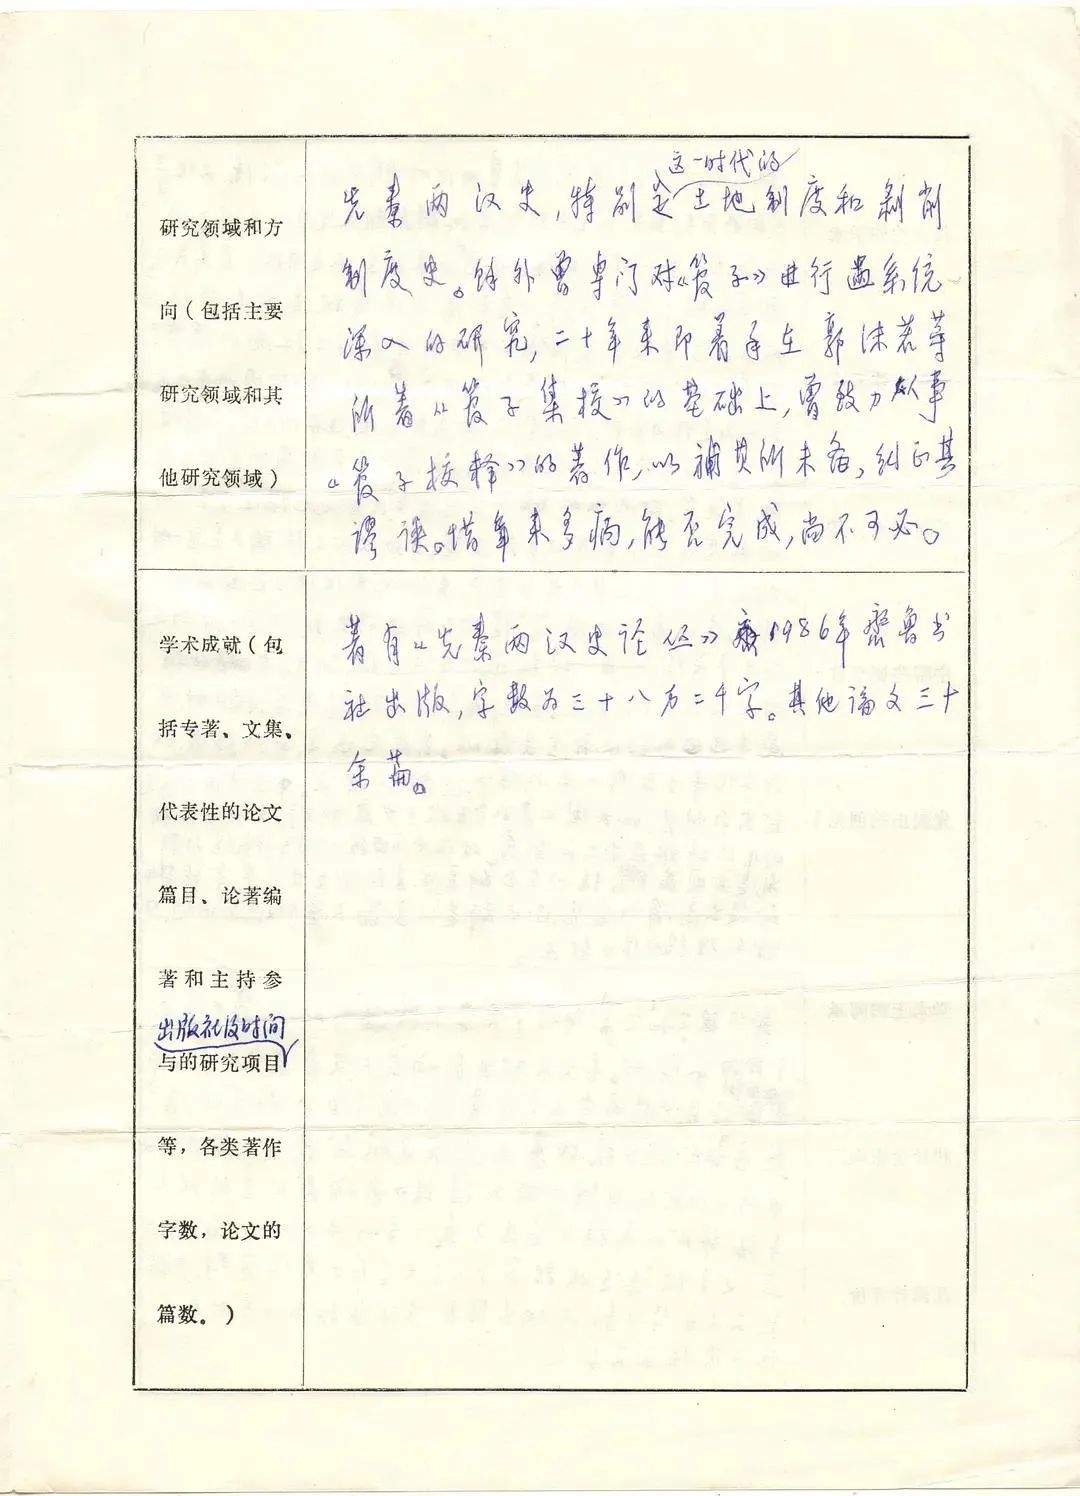 研究领域和方
向（包括主要
研究领域和其
他研究领域）
这一时代的
先秦两汉史，特别是土地制度和剥削
制度史。馀外曾专门对《管子》进行过系统
深入的研究，二十年来即着手在郭沫若等
所著《管子集校》的基础上，曾致力从事
《管子校释》的著作，以补其所未备，纠正其
谬误。惜年来多病，能否完成，尚不可必。
学术成就（包
括专著、文集、
代表性的论文
篇目、论著编
著和主持参
出版社及时间
与的研究项目
等，各类著作
字数，论文的
篇数。）
著有《先秦两汉史论丛》1986年齐鲁书
社出版，字数为三十八万二千字。其他论文三十
余篇。